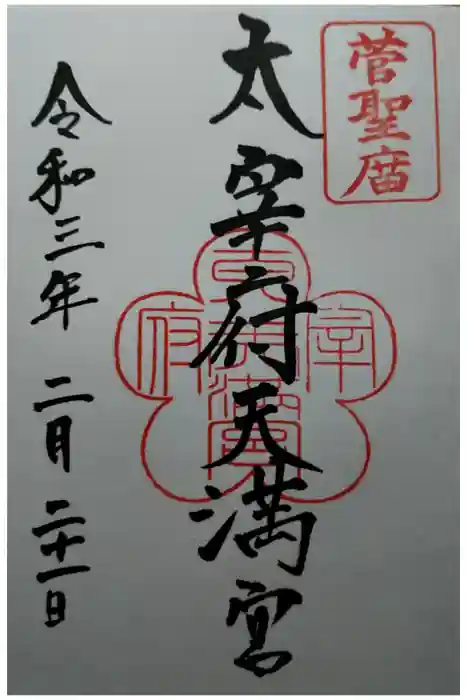 菅聖庿
太宰府天満宮
令和三年 二月 二十一日